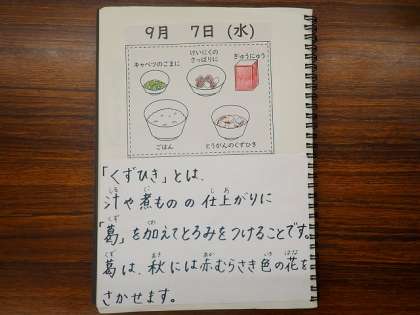 9月 7日(水)
キャベツのごまに
けいにくの
さっぱりに
ぎゅうにゅう
ごはん
とうがんのくずひき
「くずひき」とは、
汁や煮ものの仕上がりに
「葛」を加えてとろみをつけることです。
葛は、秋には赤むらさき色の花を
さかせます。